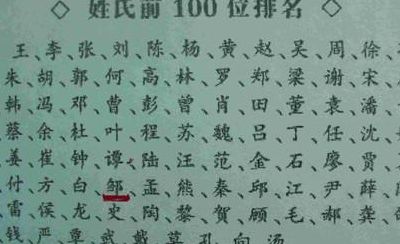 ◇ 姓氏前 100 位排名 ◇
王、李、张、刘、陈、杨、黄、赵、吴、周、徐、
朱、胡、郭、何、高、林、罗、郑、梁、谢、宋、
韩、冯、邓、曹、彭、曾、肖、田、董、袁、潘、
蔡、余、杜、叶、程、苏、魏、吕、丁、任、沈、
姜、崔、钟、谭、陆、汪、范、金、石、廖、贾、
付、方、白、邹、孟、熊、秦、邱、江、尹、薛、
雷、侯、龙、史、陶、黎、贺、顾、毛、郝、龚、
钱、严、覃、武、戴、莫、孔、向、汤